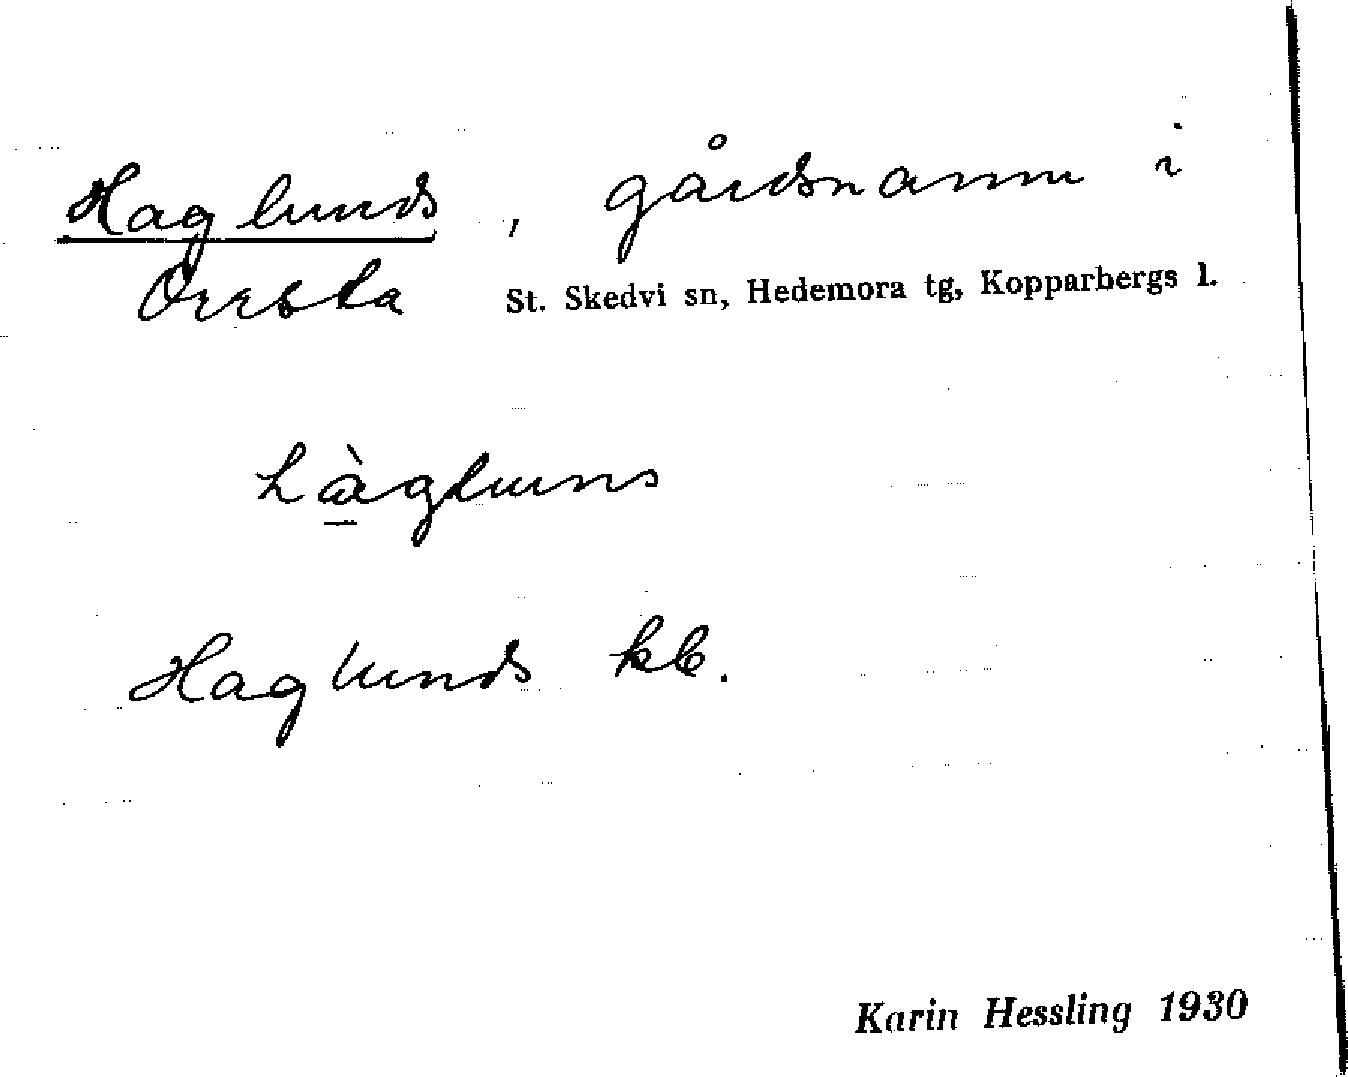 Haglunds, gårdsnamn i
Översta St. Skedvi sn, Hedemora tg, Kopparbergs l.
hàgluns
Haglunds kb.
Karin Hessling 1930